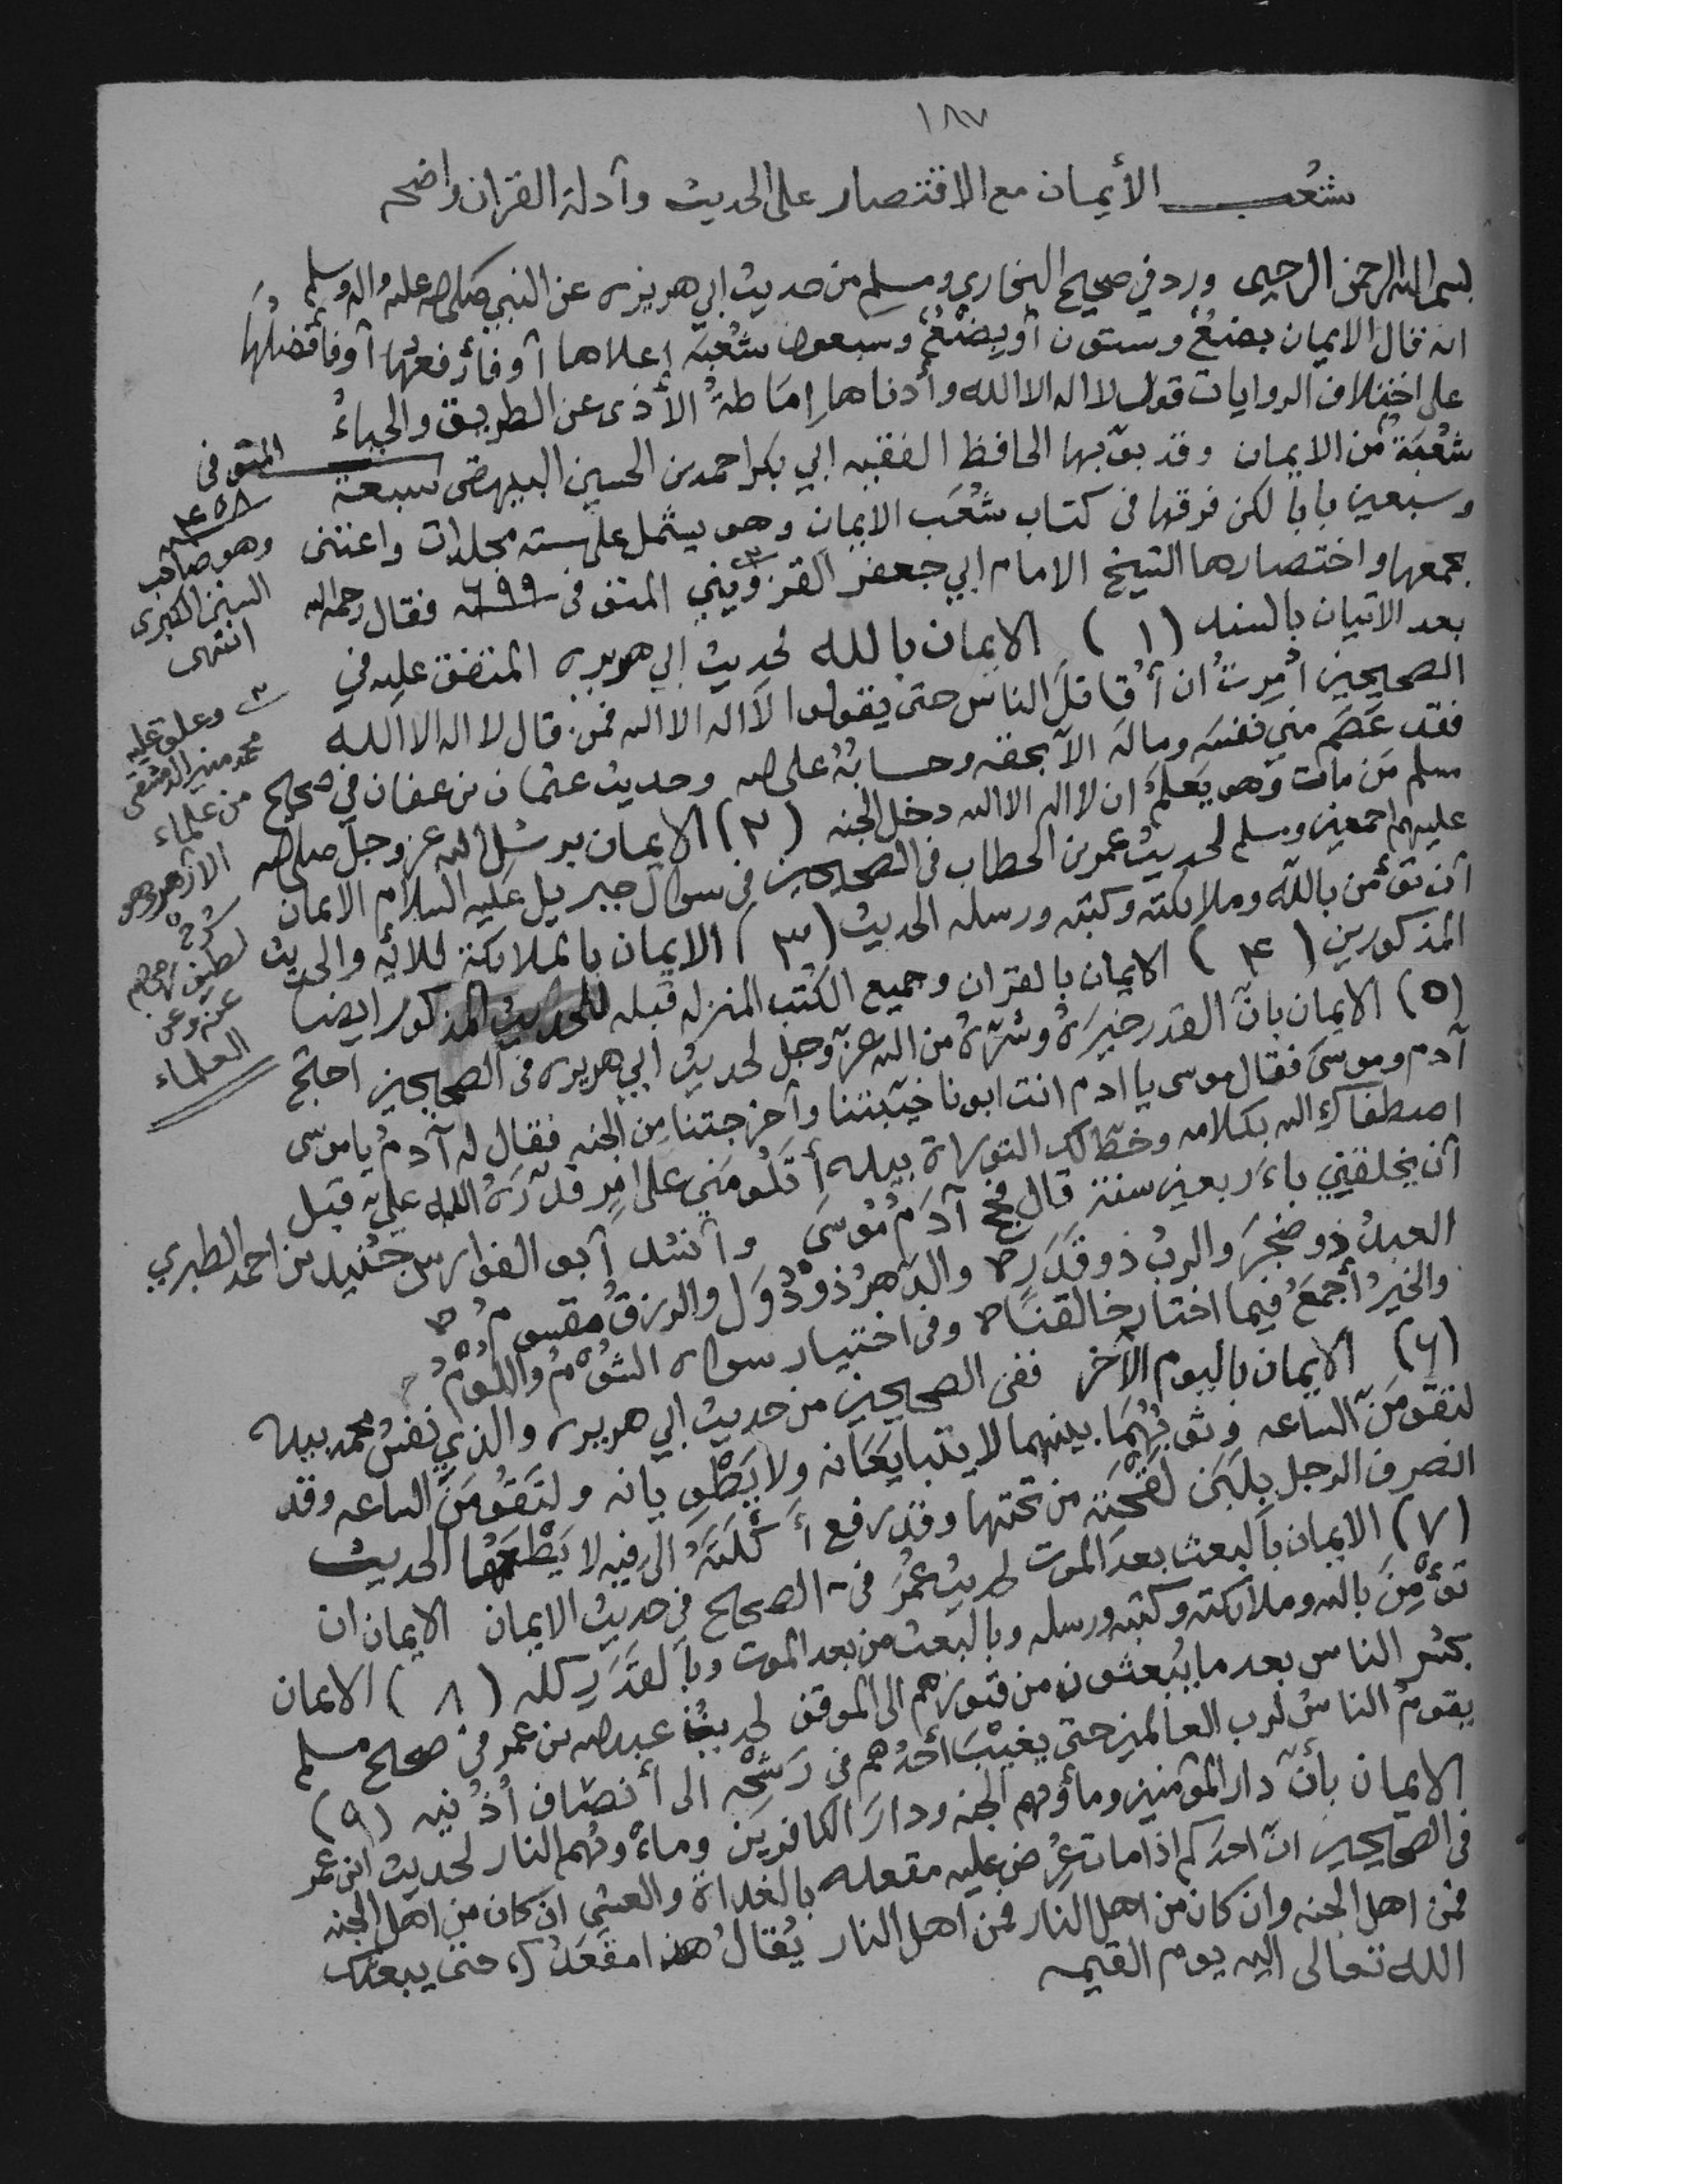 ١٨٧
شُعب الأيمان مع الاقتصار على الحديث وأدلة القران واضحه
بسم الله الرحمن الرحيم ورد في صحيح البخاري ومسلم من حديث ابي هريره عن النبي صلى الله عليه واله وسلم
انه قال الايمان بضعٌ وستون أو بِضْعٌ وسبعون شُعْبَه اعلاها أو فأرفعها أو فأفضلُها
على اختلاف الروايات قول لا اله الا الله وأدناها إمَاطةُ الأذى عن الطريق والحياءُ
شُعْبَةٌ من الايمان وقد بوّبها الحافظ الفقيه ابي بكر احمد بن الحسين البيهقى سبعة
وسبعين باباً لكن فرقها في كتاب شُعَب الايمان وهو يشتمل على سته مجلدات واعتنى
بجمعها واختصارها الشيخ الامام ابي جعفر القزويني المتوفى ٦٩٩ فقال رحمه الله
بعد الاتيان بالسند (١) الايمان بالله لحديث ابي هريره المتفق عليه في
الصحيحين أُمِرتُ ان أُقاتلَ الناس حتى يقولوا لا اله الا الله فمن قال لا اله الا الله
فقد عَصَم مني نفسَه ومالَه الا بحقه وحسابُهُ على الله وحديث عثمان بن عفان في صحيح
مسلم مَن مات وهو يَعلمُ ان لا اله الا الله دخل الجنه (٢) الايمان برسُل الله عز وجل صلى الله
عليهم اجمعين وسلم لحديث عمر بن الخطاب في الصحيحين في سوال جبريل عليه السلام الايمان
أن تؤمن بالله وملائكته وكتبه ورسله الحديث (٣) الايمان بالملائكة للآيه والحديث
المذكورين (٤) الايمان بالقران وجميع الكتب المنزله قبله للحديث المذكور ايضا
(٥) الايمان بأن القدر خيرَهُ وشرَّهُ من الله عز وجل لحديث ابي هريره في الصحيحين احتج
آدم وموسى فقال موسى يا ادم انت ابونا خيّبتنا وأخرجتنا مِن الجنه فقال له آدمُ يا موسى
اصطفاك الله بكلامه وخطّ لك التوراة بيده أتلُومُني على امرٍ قدّرَهُ الله عليّ قبل
أن يخلقني بأربعين سنة قال فحج آدَمُ مُوسَى وأنشد أبو الفوارس جُنَيد بن احمد الطبري
العبدُ ذو ضَجَرَ والربُ ذو قَدَرٍ والدهرُ ذو دُوَل والرزقُ مقسومُ
والخيرُ أجمَعُ فيما اختار خالقنا وفى اختيار سواه الشُؤمُ واللُومُ
(٦) الايمان باليوم الآخر ففى الصحيحين من حديث ابي هريره والذي نفسُ محمد بيده
لتقومَنَّ الساعه وثوبُهُمَا بينهما لا يتبايَعَانه ولا يَطْوِيانه ولتَقُومَنَّ الساعه وقد
انصرف الرجل بلبَن لَقْحَته من تحتها وقد رفع أُكْلَتَهُ الى فيه لا يَطْعَمُها الحديث
(٧) الايمان بالبعث بعدَ الموت لحديث عُمَرُ في الصحيح في حديث الايمان الايمان ان
تؤْمِنَ بالله وملائكته وكتبه ورسله وبالبعث من بعد الموت وبالقَدَرِ كله (٨) الايمان
بحشر الناس بعد ما يبعثون من قبورهم الى الموقف لحديث عبد الله بن عمر في صحيح مسلم
يقومُ الناسُ لرب العالمين حتى يغيْبَ أحدُهم في رَشْحِه الى أنصاف أُذُنيه (٩)
الايمان بأنّ دار المؤمنين ومأوهم الجنه ودارَ الكافرين ومأوهم النار لحديث ابن عمر
في الصحيحين انّ احدَكم اذا مات عُرِض عليه مقعده بالغداة والعشي ان كان من اهل الجنه
فمن اهل الجنه وان كان من اهل النار فمن اهل النار يُقالُ هذا مقعدُك حتى يبعثك
الله تعالى اليه يوم القيمه
المتوفى
٤٥٨
وهو صاحب
السنن الكبرى
انتهى
وعلق عليه
محمد منير الدمشقى
من علماء
الازهر وهو
شرح
لطيف
عنه وعن
العلماء